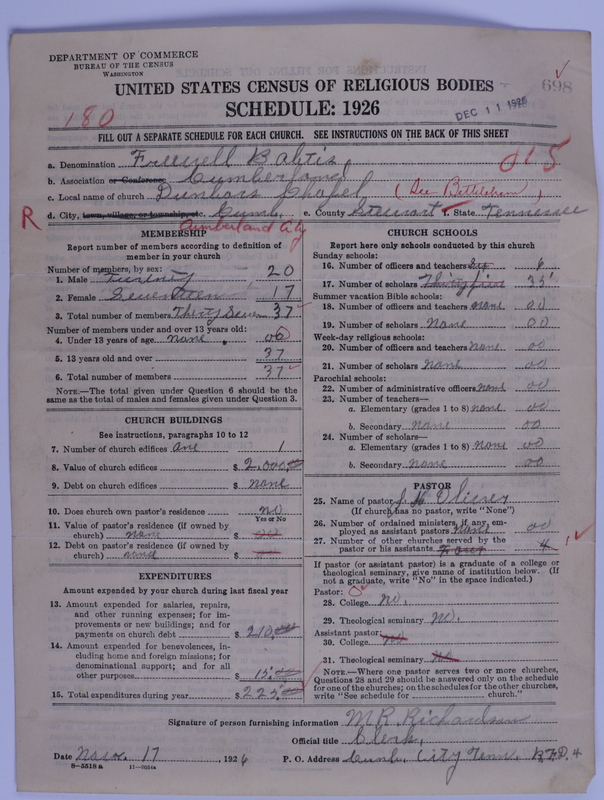 DEPARTMENT OF COMMERCE
BUREAU OF THE CENSUS
WASHINGTON
UNITED STATES CENSUS OF RELIGIOUS BODIES
698
SCHEDULE: 1926
DEC 11 1926
180
FILL OUT A SEPARATE SCHEDULE FOR EACH CHURCH. SEE INSTRUCTIONS ON THE BACK OF THIS SHEET
015
a. Denomination Freewell Babtis
b. Association or Conference Cumberland
c. Local name of church Dunbars Chapel (See Bethlehem)
R
d. City, town, village, or township, etc. Cumb. e. County Stewart f. State Tennessee
Cumberland City
MEMBERSHIP
Report number of members according to definition of member in your church
Number of members, by sex:
1. Male Twenty 20
2. Female Seventeen 17
3. Total number of members Thirty Seven 37
Number of members under and over 13 years old:
4. Under 13 years of age none 00
5. 13 years old and over 37
6. Total number of members 37
NOTE.—The total given under Question 6 should be the
same as the total of males and females given under Question 3.
CHURCH BUILDINGS
See instructions, paragraphs 10 to 12
7. Number of church edifices one 1
8. Value of church edifices $ 2,000.00
9. Debt on church edifices $ none
10. Does church own pastor's residence no
Yes or No
11. Value of pastor's residence (if owned by
church) none $ 00
12. Debt on pastor's residence (if owned by
church) none $
EXPENDITURES
Amount expended by your church during last fiscal year
13. Amount expended for salaries, repairs,
and other running expenses; for im-
provements or new buildings; and for
payments on church debt $ 210.00
14. Amount expended for benevolences, in-
cluding home and foreign missions; for
denominational support; and for all
other purposes $ 15.00
15. Total expenditures during year $ 225.00
CHURCH SCHOOLS
Report here only schools conducted by this church
Sunday schools:
16. Number of officers and teachers Six 6
17. Number of scholars Thirty five 35
Summer vacation Bible schools:
18. Number of officers and teachers none 00
19. Number of scholars None 00
Week-day religious schools:
20. Number of officers and teachers none 00
21. Number of scholars None 00
Parochial schools:
22. Number of administrative officers none 00
23. Number of teachers—
a. Elementary (grades 1 to 8) none 00
b. Secondary none 00
24. Number of scholars—
a. Elementary (grades 1 to 8) none 00
b. Secondary none 00
PASTOR
25. Name of pastor J. H.
(If church has no pastor, write "None")
26. Number of ordained ministers, if any, em-
ployed as assistant pastors None 00
27. Number of other churches served by the
pastor or his assistants Four 4
If pastor (or assistant pastor) is a graduate of a college or
theological seminary, give name of institution below. (If
not a graduate, write "No" in the space indicated.)
Pastor:
28. College no.
29. Theological seminary no.
Assistant pastor:
30. College no
31. Theological seminary no
NOTE.—Where one pastor serves two or more churches,
Questions 28 and 29 should be answered only on the schedule
for one of the churches; on the schedules for the other churches,
write "See schedule for church."
Signature of person furnishing information M R Richardson
Official title Clerk,
Date Nov. 17, 1926 P. O. Address Cumb. City Tenn. R.F.D. 4
8-5518 a 11-9054a